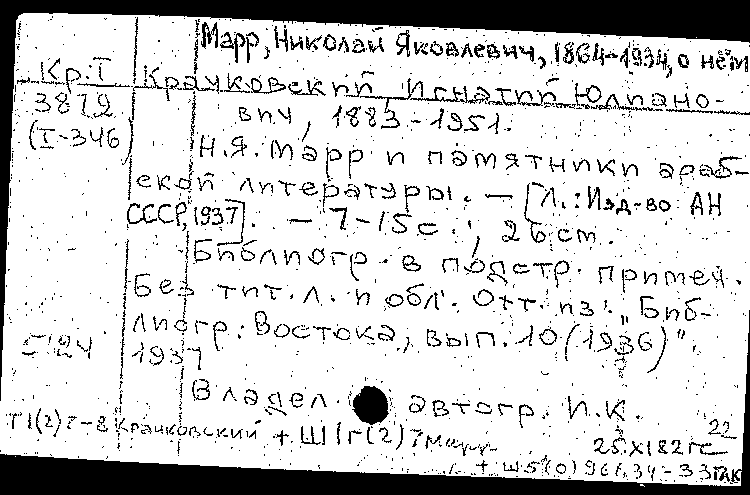 Марр, Николай Яковлевич, 1864-1934, о нём
Кр.Т Крачковский, Игнатий Юлиано-
3879 вич, 1883-1951.
(I-346) Н.Я. Марр и памятники араб-
ской литературы. — [Л.: Изд-во АН
СССР, 1937]. — 7-15 с.; 26 см.
Библиогр. в подстр. примеч.
Без тит. л. и обл. Отт. из: „Биб-
лиогр. Востока, вып. 10 (1936)",
1937
Владел. автогр. И.К.
22
Крачковский + Ш1г(2)7 Марр
25.XI82 ГС